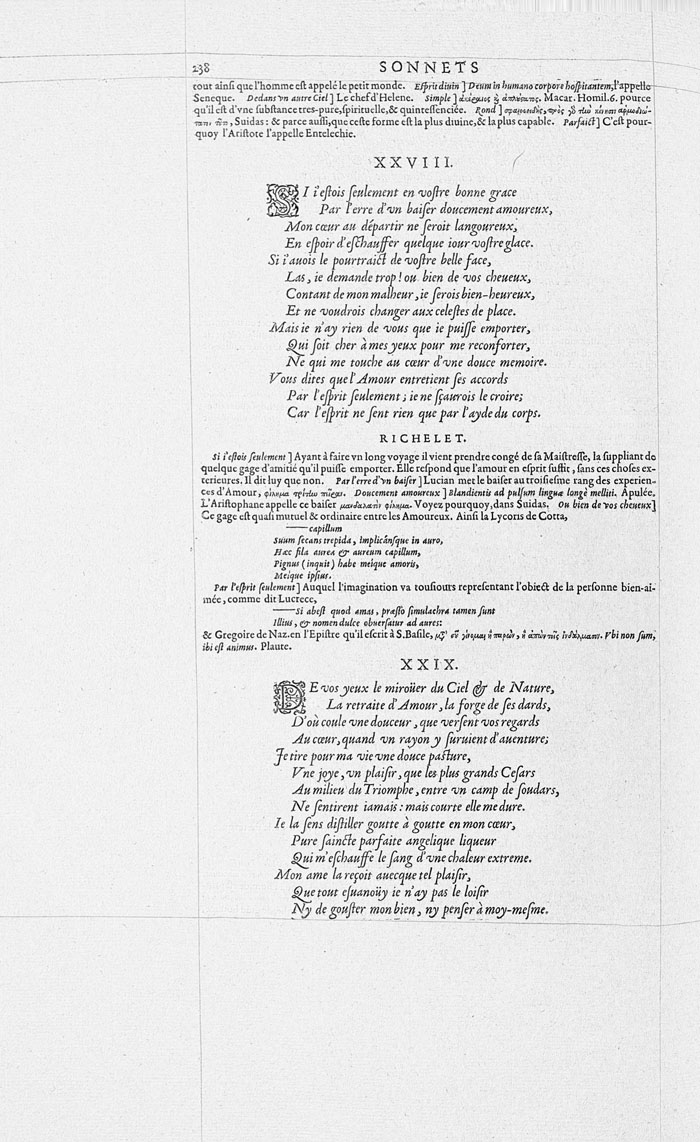 238 SONNETS
tout ainsi que l'homme est appelé le petit monde. Esprit diuin ] Deum in humano corpore hospitantem, l'appelle
Seneque. Dedans vn autre Ciel ] Le chef d'Helene. Simple ] Macar. Homil. 6. pource
qu'il est d'vne substance tres-pure, spirituelle, & quintessenciée. Rond ]
Suidas: & parce aussi, que ceste forme est la plus diuine, & la plus capable. Parfaict ] C'est pour-
quoy l'Aristote l'appelle Entelechie.
XXVIII.
SI i'estois seulement en vostre bonne grace
Par l'erre d'vn baiser doucement amoureux,
Mon cœur au départir ne seroit langoureux,
En espoir d'eschauffer quelque iour vostre glace.
Si i'auois le pourtraict de vostre belle face,
Las, ie demande trop! ou bien de vos cheueux,
Contant de mon malheur, ie serois bien-heureux,
Et ne voudrois changer aux celestes de place.
Mais ie n'ay rien de vous que ie puisse emporter,
Qui soit cher à mes yeux pour me reconforter,
Ne qui me touche au cœur d'vne douce memoire.
Vous dites que l'Amour entretient ses accords
Par l'esprit seulement; ie ne sçaurois le croire;
Car l'esprit ne sent rien que par l'ayde du corps.
RICHELET.
Si i'estois seulement ] Ayant à faire vn long voyage il vient prendre congé de sa Maistresse, la suppliant de
quelque gage d'amitié qu'il puisse emporter. Elle respond que l'amour en esprit suffit, sans ces choses ex-
terieures. Il dit luy que non. Par l'erre d'vn baiser ] Lucian met le baiser au troisiesme rang des experien-
ces d'Amour, Doucement amoureux ] Blandientis ad pulsum linguæ longè melliti. Apulée.
L'Aristophane appelle ce baiser Voyez pourquoy, dans Suidas. Ou bien de vos cheueux ]
Ce gage est quasi mutuel & ordinaire entre les Amoureux. Ainsi la Lycoris de Cotta,
——capillum
Suum secans trepida, implicánsque in auro,
Hæc fila aurea & aureum capillum,
Pignus (inquit) habe meique amoris,
Meique ipsius.
Par l'esprit seulement ] Auquel l'imagination va tousiours representant l'obiect de la personne bien-ai-
mée, comme dit Lucrece,
——Si abest quod amas, præsto simulachra tamen sunt
Illius, & nomen dulce obuersatur ad aures:
& Gregoire de Naz. en l'Epistre qu'il escrit à S. Basile, Vbi non sum,
ibi est animus. Plaute.
XXIX.
DE vos yeux le miroüer du Ciel & de Nature,
La retraite d'Amour, la forge de ses dards,
D'où coule vne douceur, que versent vos regards
Au cœur, quand vn rayon y suruient d'auenture;
Ie tire pour ma vie vne douce pasture,
Vne joye, vn plaisir, que les plus grands Cesars
Au milieu du Triomphe, entre vn camp de soudars,
Ne sentirent iamais: mais courte elle me dure.
Ie la sens distiller goutte à goutte en mon cœur,
Pure saincte parfaite angelique liqueur
Qui m'eschauffe le sang d'vne chaleur extreme.
Mon ame la reçoit auecque tel plaisir,
Que tout esuanoüy ie n'ay pas le loisir
Ny de gouster mon bien, ny penser à moy-mesme.